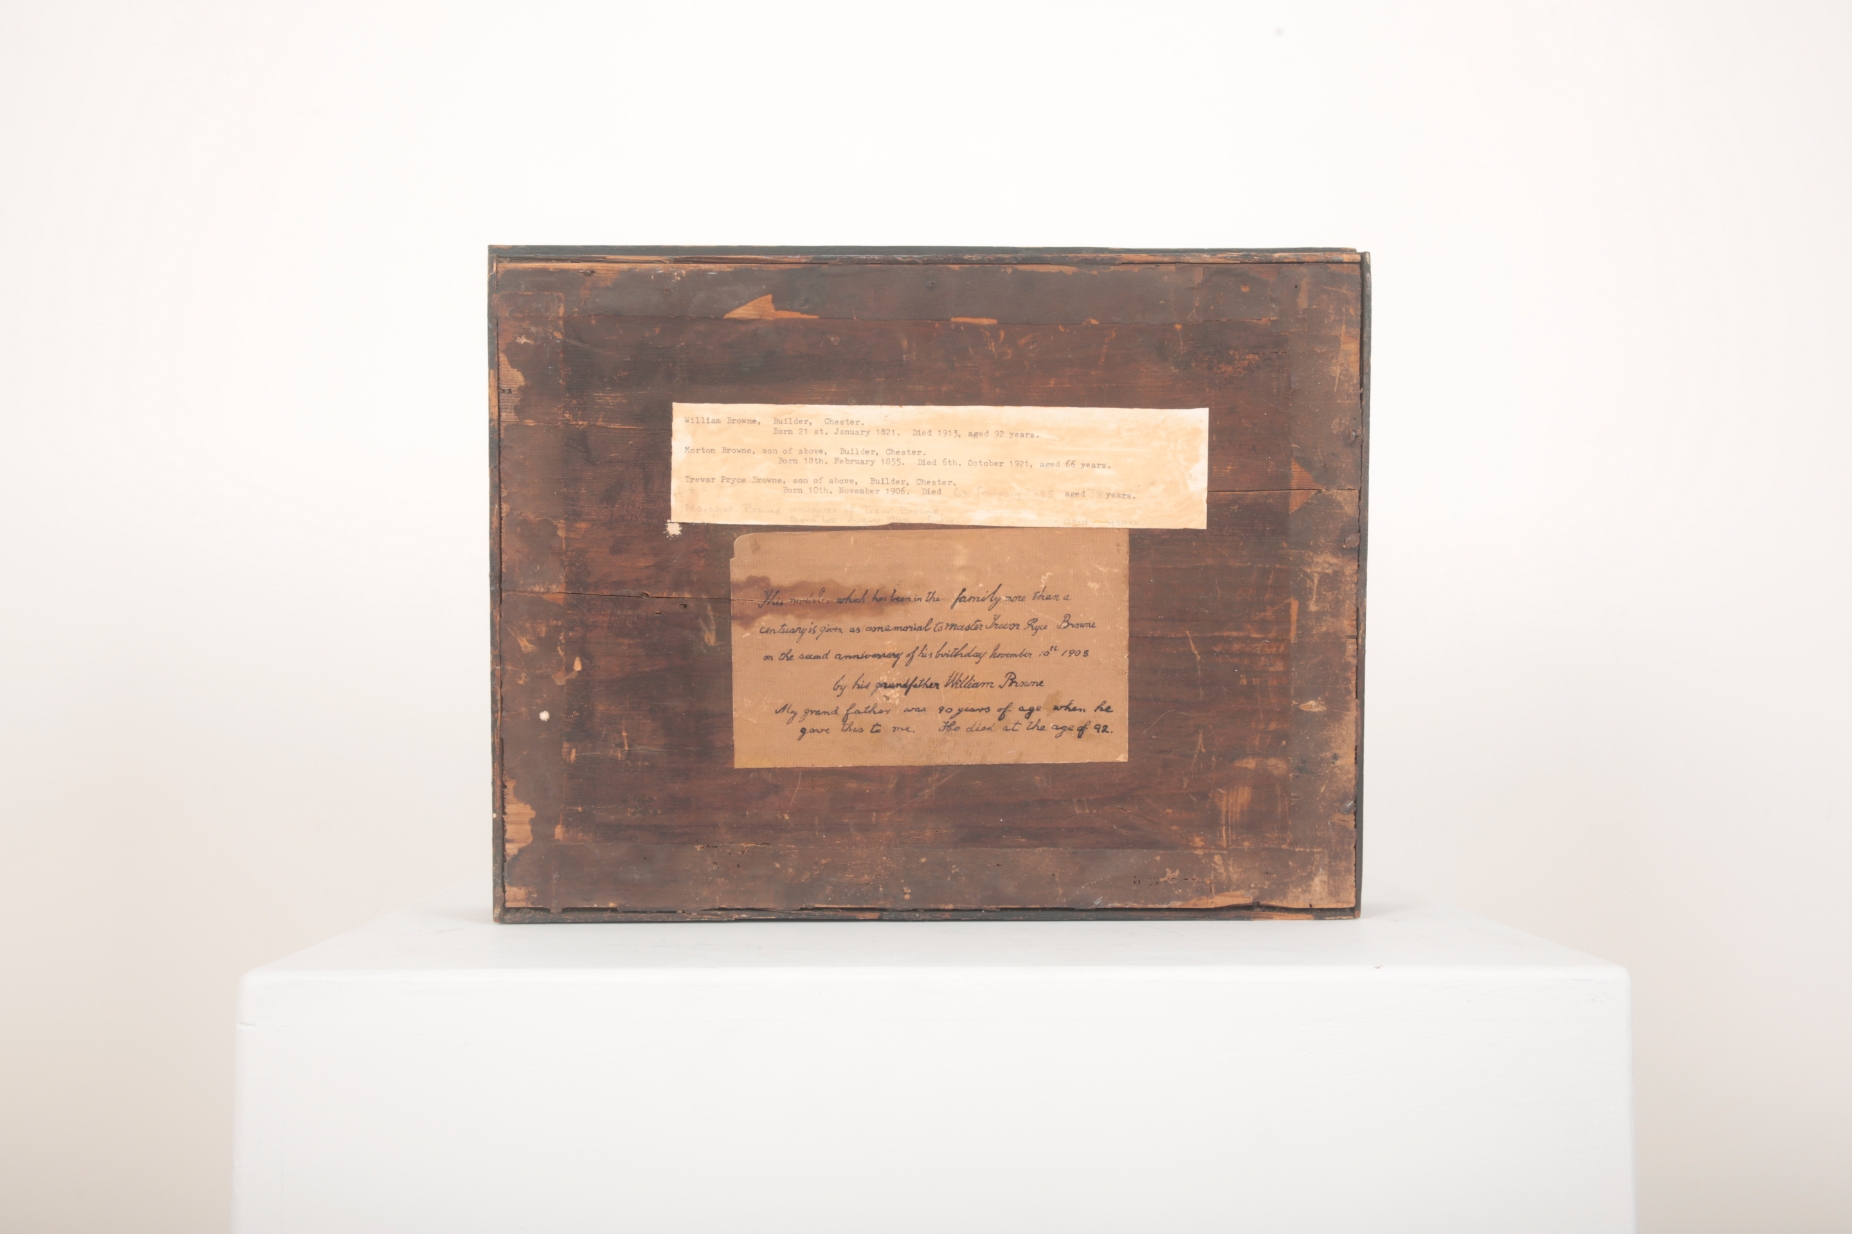 William Browne, Builder, Chester.
Born 21 st. January 1821. Died 1913, aged 92 years.
Morton Browne, son of above, Builder, Chester.
Born 18th. February 1855. Died 6th. October 1921, aged 66 years.
Trevor Pryce Browne, son of above, Builder, Chester.
Born 10th. November 1906. Died aged years.
This which has been in the family more than a
century is given as a memorial to Master Trevor Pryce Browne
on the second anniversary of his birthday November 10th 1908
by his grandfather William Browne
My grand father was 90 years of age when he
gave this to me. He died at the age of 92.